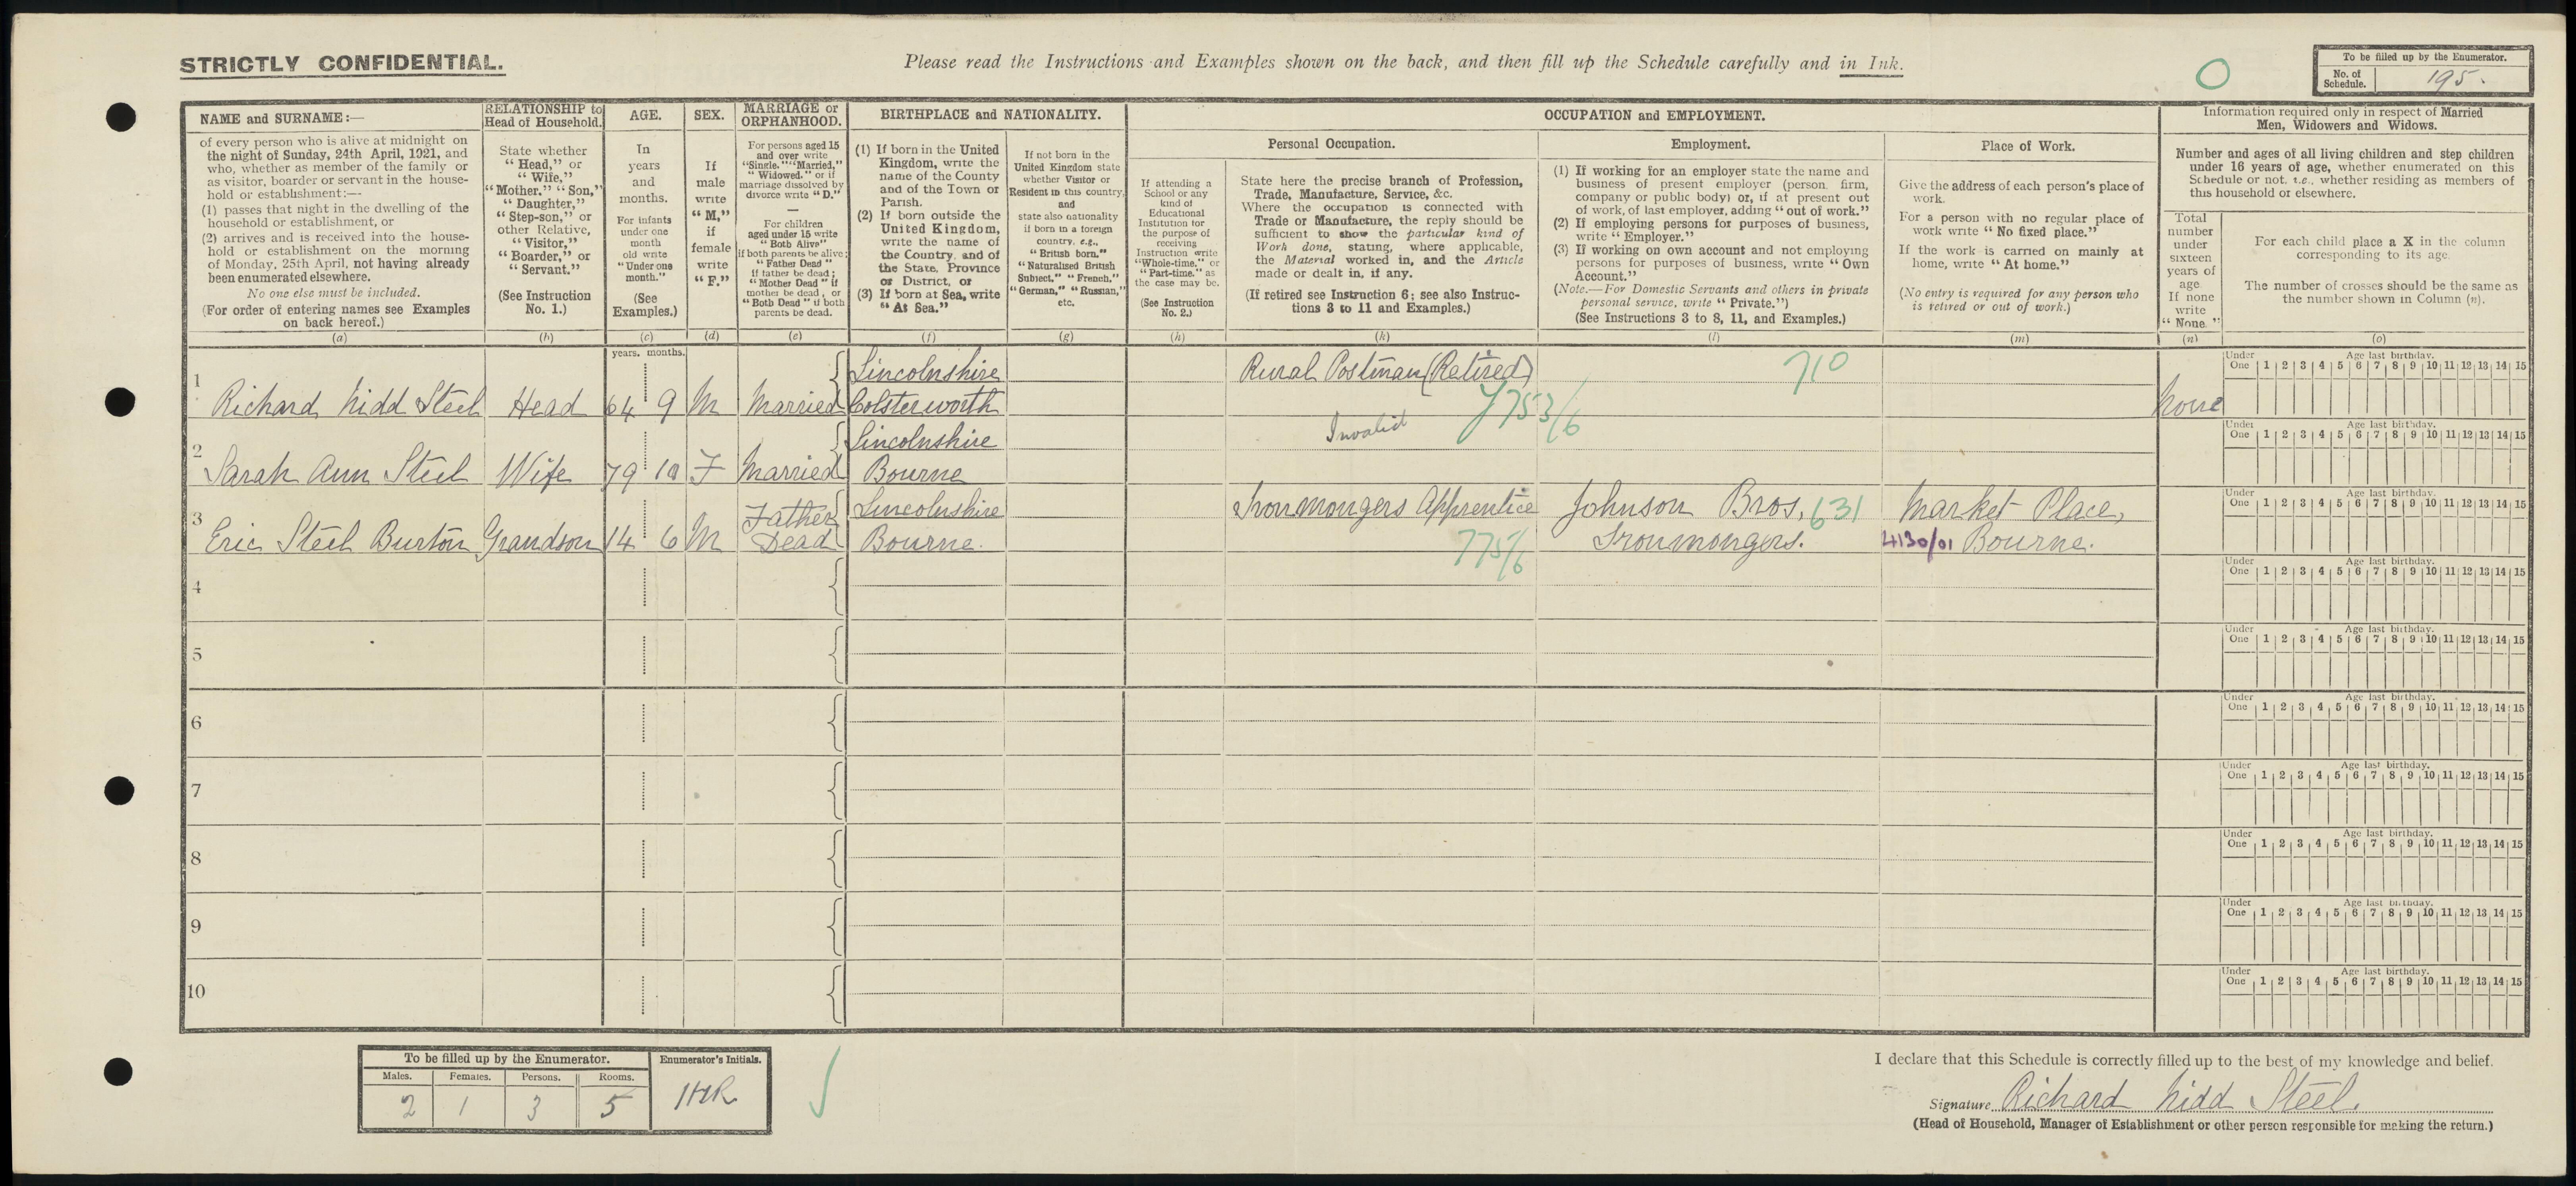 STRICTLY CONFIDENTIAL.
Please read the Instructions and Examples shown on the back, and then fill up the Schedule carefully and in Ink.
To be filled up by the Enumerator.
No. of Schedule. 195.
NAME and SURNAME:—
of every person who is alive at midnight on
the night of Sunday, 24th April, 1921, and
who, whether as member of the family or
as visitor, boarder or servant in the house-
hold or establishment:—
(1) passes that night in the dwelling of the
household or establishment, or
(2) arrives and is received into the house-
hold or establishment on the morning
of Monday, 25th April, not having already
been enumerated elsewhere.
No one else must be included.
(For order of entering names see Examples
on back hereof.)
(a)
RELATIONSHIP to
Head of Household.
State whether
"Head," or
"Wife,"
"Mother," "Son,"
"Daughter,"
"Step-son," or
other Relative,
"Visitor,"
"Boarder," or
"Servant."
(See Instruction
No. 1.)
(b)
AGE.
In
years
and
months.
For infants
under one
month
old write
"Under one
month."
(See
Examples.)
(c)
SEX.
If
male
write
"M,"
if
female
write
"F."
(d)
MARRIAGE or
ORPHANHOOD.
For persons aged 15
and over write
"Single," "Married,"
"Widowed," or if
marriage dissolved by
divorce write "D."
—
For children
aged under 15 write
"Both Alive"
if both parents be alive;
"Father Dead"
if father be dead;
"Mother Dead" if
mother be dead, or
"Both Dead" if both
parents be dead.
(e)
BIRTHPLACE and NATIONALITY.
(1) If born in the United
Kingdom, write the
name of the County
and of the Town or
Parish.
(2) If born outside the
United Kingdom,
write the name of
the Country, and of
the State, Province
or District, or
(3) If born at Sea, write
"At Sea."
(f)
If not born in the
United Kingdom state
whether Visitor or
Resident in this country,
and
state also nationality
if born in a foreign
country, e.g.,
"British born."
"Naturalised British
Subject," "French,"
"German," "Russian,"
etc.
(g)
OCCUPATION and EMPLOYMENT.
If attending a
School or any
kind of
Educational
Institution for
the purpose of
receiving
Instruction write
"Whole-time," or
"Part-time," as
the case may be.
(See Instruction
No. 2.)
(h)
Personal Occupation.
State here the precise branch of Profession,
Trade, Manufacture, Service, &c.
Where the occupation is connected with
Trade or Manufacture, the reply should be
sufficient to show the particular kind of
Work done, stating, where applicable,
the Material worked in, and the Article
made or dealt in, if any.
(If retired see Instruction 6; see also Instruc-
tions 3 to 11 and Examples.)
(k)
Employment.
(1) If working for an employer state the name and
business of present employer (person, firm,
company or public body) or, if at present out
of work, of last employer, adding "out of work."
(2) If employing persons for purposes of business,
write "Employer."
(3) If working on own account and not employing
persons for purposes of business, write "Own
Account."
(Note.—For Domestic Servants and others in private
personal service, write "Private.")
(See Instructions 3 to 8, 11, and Examples.)
(l)
Place of Work.
Give the address of each person's place of
work.
For a person with no regular place of
work write "No fixed place."
If the work is carried on mainly at
home, write "At home."
(No entry is required for any person who
is retired or out of work.)
(m)
Information required only in respect of Married
Men, Widowers and Widows.
Number and ages of all living children and step children
under 16 years of age, whether enumerated on this
Schedule or not, i.e., whether residing as members of
this household or elsewhere.
Total
number
under
sixteen
years of
age.
If none
write
"None."
(n)
For each child place a X in the column
corresponding to its age.
The number of crosses should be the same as
the number shown in Column (n).
(o)
years. months.
1 Richard Nidd Steel Head 64 9 M Married Lincolnshire Colsterworth Rural Postman (Retired) Y753/6 710 None
2 Sarah Ann Steel Wife 79 10 F Married Lincolnshire Bourne Invalid
3 Eric Steel Burton Grandson 14 6 M Father Dead Lincolnshire Bourne. Ironmongers Apprentice 775/6 Johnson Bros, Ironmongers. 631 Market Place, Bourne. 4130/01
4
5
6
7
8
9
10
Under One Age last birthday. 1 2 3 4 5 6 7 8 9 10 11 12 13 14 15
Under One Age last birthday. 1 2 3 4 5 6 7 8 9 10 11 12 13 14 15
Under One Age last birthday. 1 2 3 4 5 6 7 8 9 10 11 12 13 14 15
Under One Age last birthday. 1 2 3 4 5 6 7 8 9 10 11 12 13 14 15
Under One Age last birthday. 1 2 3 4 5 6 7 8 9 10 11 12 13 14 15
Under One Age last birthday. 1 2 3 4 5 6 7 8 9 10 11 12 13 14 15
Under One Age last birthday. 1 2 3 4 5 6 7 8 9 10 11 12 13 14 15
Under One Age last birthday. 1 2 3 4 5 6 7 8 9 10 11 12 13 14 15
Under One Age last birthday. 1 2 3 4 5 6 7 8 9 10 11 12 13 14 15
Under One Age last birthday. 1 2 3 4 5 6 7 8 9 10 11 12 13 14 15
To be filled up by the Enumerator. Enumerator's Initials.
Males. Females. Persons. Rooms.
2 1 3 5
I declare that this Schedule is correctly filled up to the best of my knowledge and belief.
Signature Richard Nidd Steel.
(Head of Household, Manager of Establishment or other person responsible for making the return.)